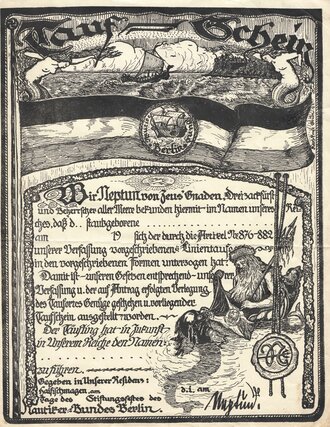 Tauf-Schein
Wir Neptun von Zeus' Gnaden, Dreizackfürst
und Beherrscher aller Meere bekunden hiermit im Namen unseres Rei-
ches, daß d.. staubgeborene
am 19 sich der durch die Artikel Nr 876-882
unserer Verfassung vorgeschriebenen Linientaufe
in den vorgeschriebenen Formen unterzogen hat.
Damit ist unseren Gesetzen entsprechend unserer
Verfassung u. der auf Antrag erfolgten Verlegung
des Tauf Genüge geschehen u. vorliegender
Taufschein ausgestellt worden.
Der Täufling hat in Zukunft
in Unserem Reiche den Namen:
zu führen.
Gegeben in Unserer Residenz:
am d.i. am
Tage des Stiftungsfestes des
Nautiker-Bundes Berlin.
Neptun